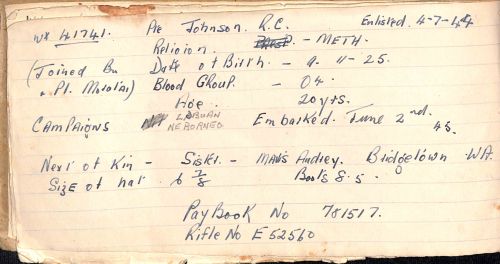 WX 41741. Pte Johnson. R.C. Enlisted. 4-7-44
Religion. - METH.
(Joined Bn Date of Birth - 9. 11 - 25.
Pl. Morotai) Blood Group. - O4.
Age. 20 yrs.
CAMPAIGNS LABUAN Embarked. June 2nd. 45.
NE BORNEO
Next of Kin - Sister. - Audrey. Bridgetown WA.
Size of hat. 6 7/8 Boots 8.5.
Pay Book No 781517.
Rifle No E52560